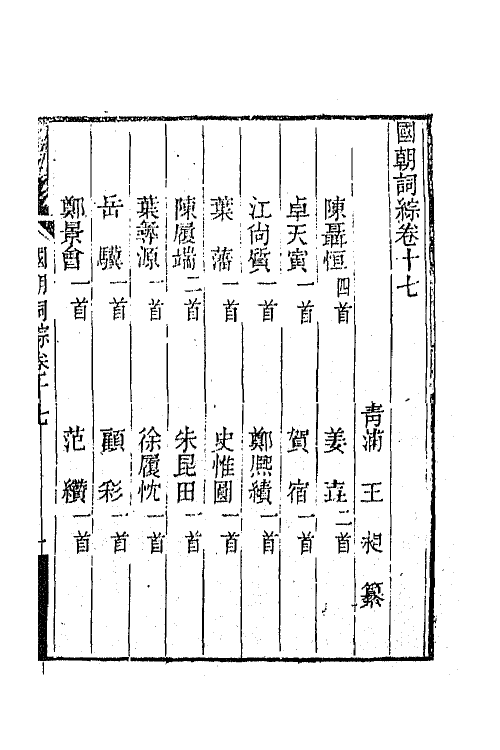 國朝詞綜卷十七
青浦 王昶 纂
陳聶恒四首 姜垚二首
卓天寅一首 賀宿一首
江尙質一首 鄭熙績一首
葉藩一首 史惟圓一首
陳履端二首 朱昆田一首
葉尋源一首 徐履忱一首
岳驥一首 顧彩一首
鄭景會一首 范纘一首
國朝詞綜卷十七 一